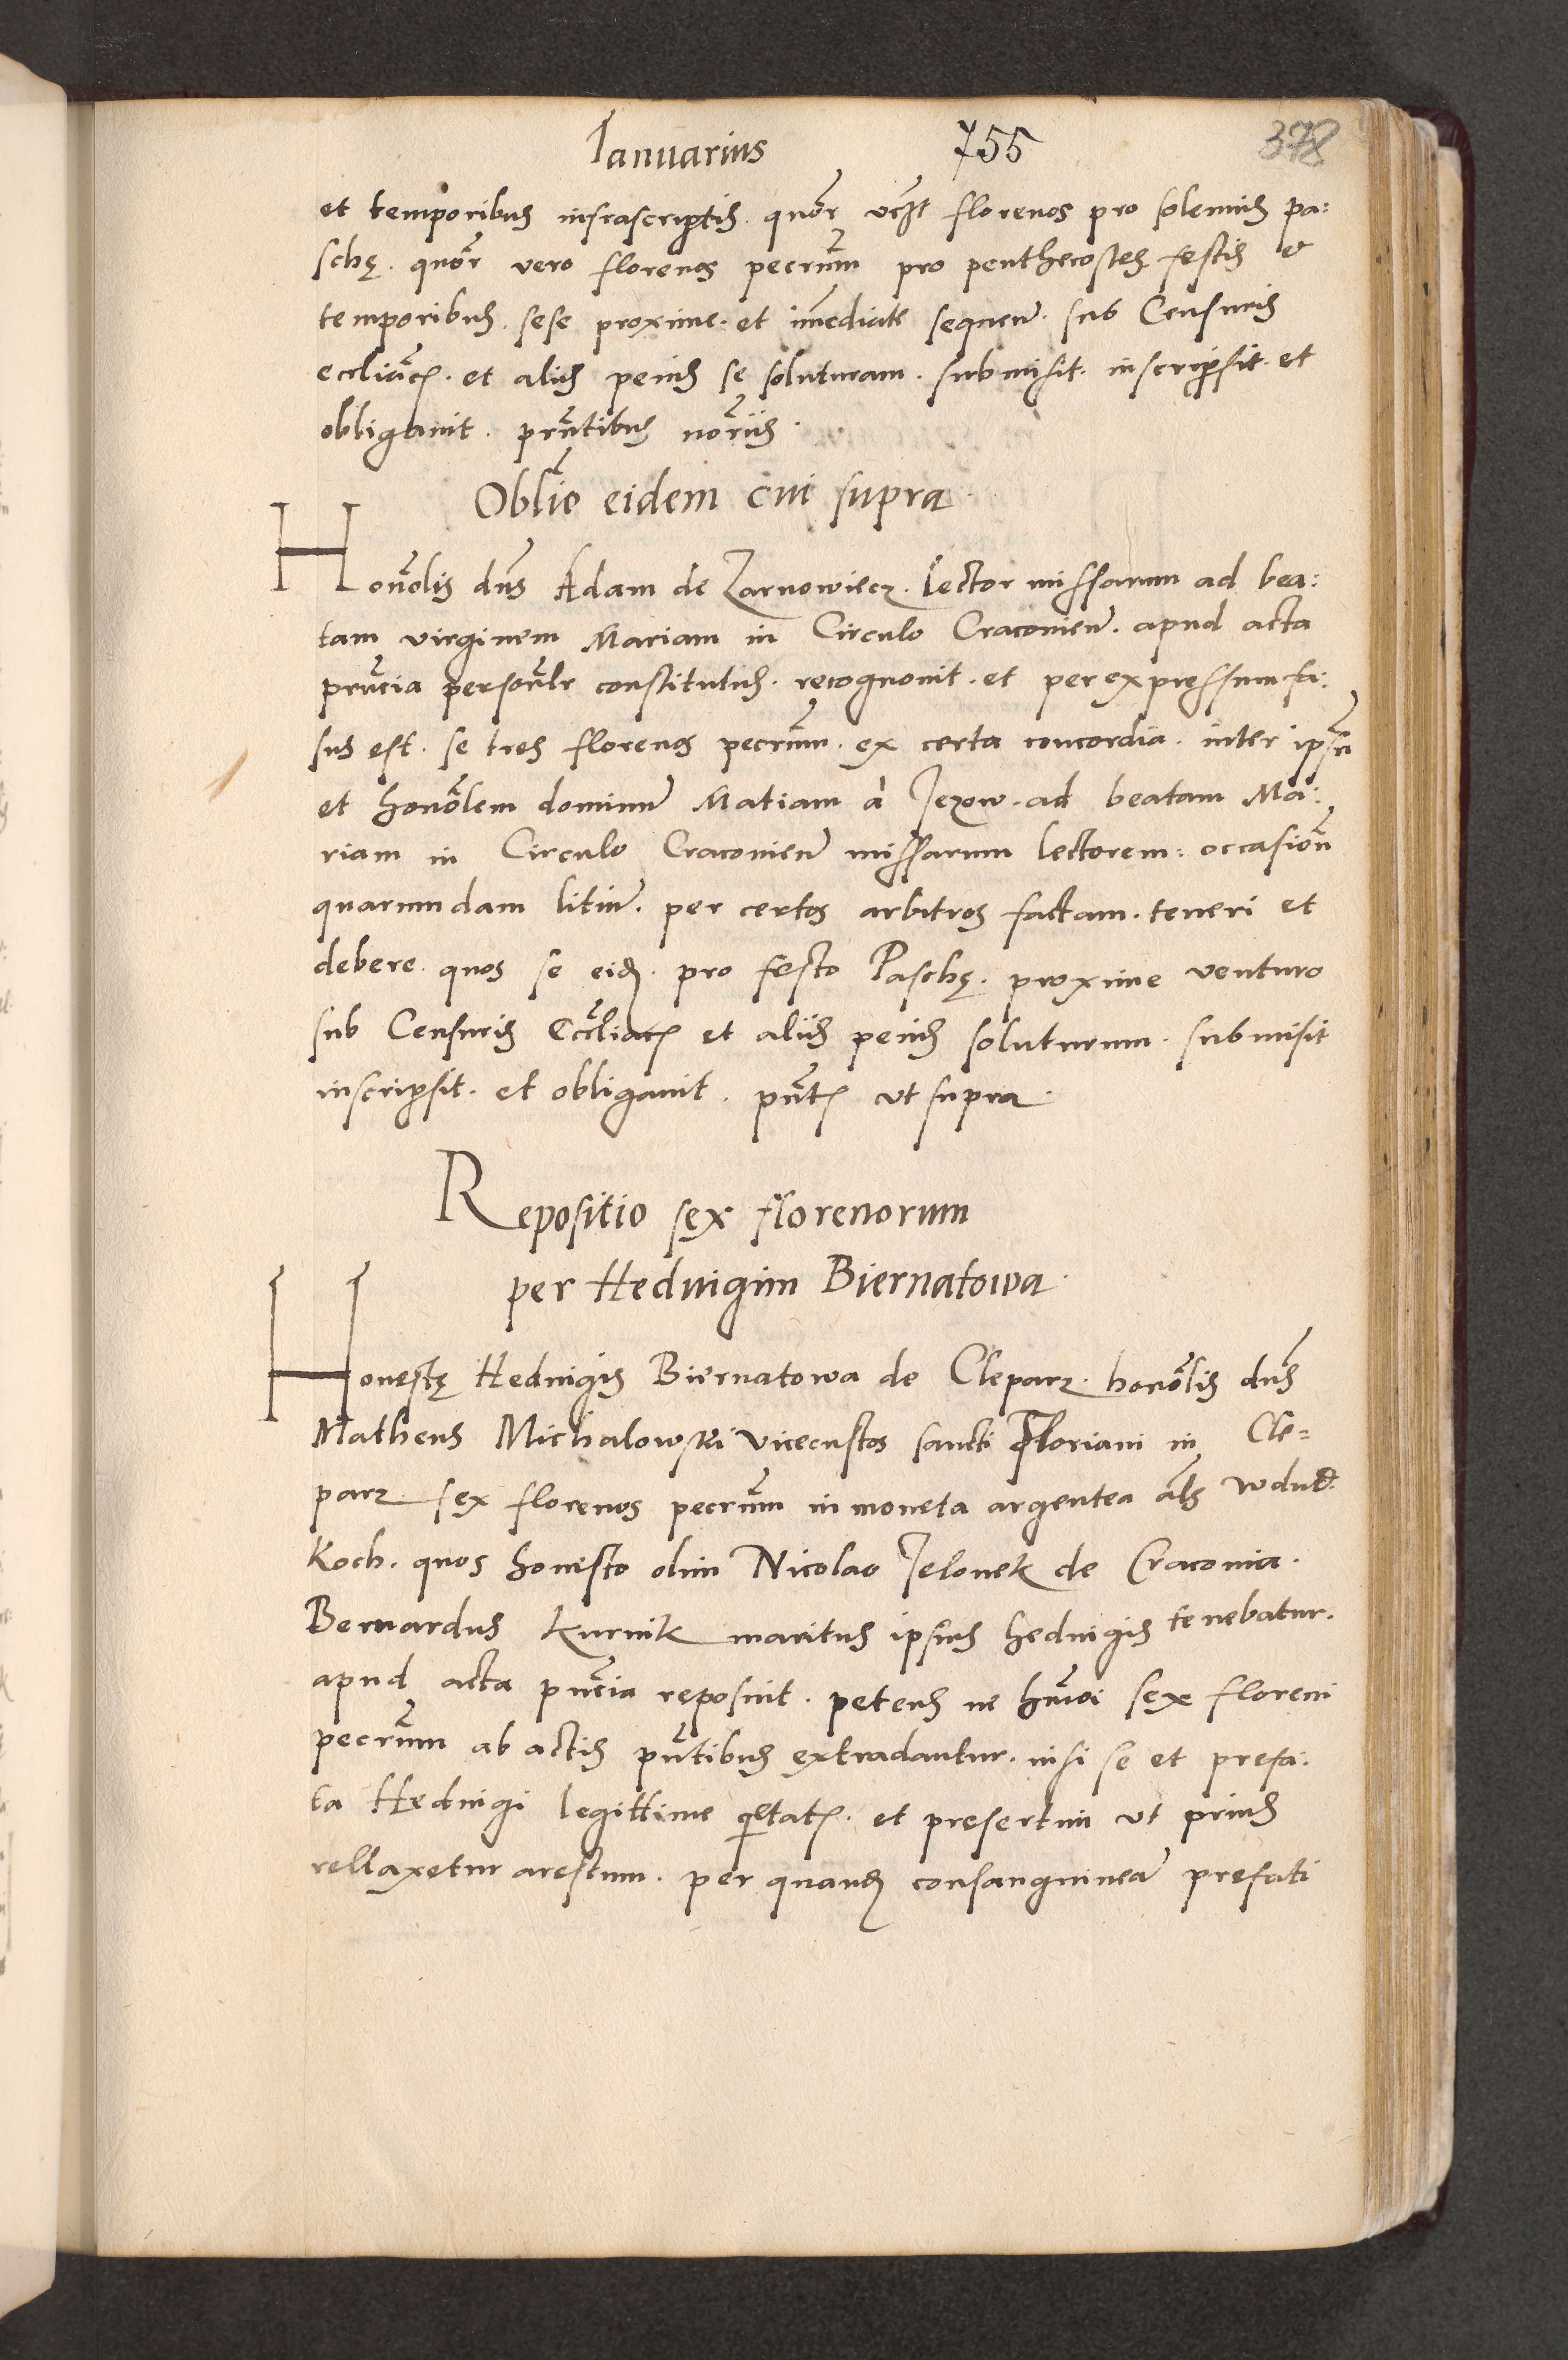 Ianuarius 755 378
et temporibus infrascriptis. quor vcʒt florenos pro solemnis pa:
schę. quor vero florenos pecrum pro penthecostes festis et
temporibus. sese proxime. et imediate sequen. sub Censuris
eccliacʒ. et aliis penis se soluturam. submisit. inscripsit. et
obligauit. prntibus noriis.
Oblio eidem cui supra.
Honolis dns Adam de Zarnowiecz. lector missarum ad bea:
tam virginem Mariam in Circulo Cracouien. apud acta
prncia personlr constitutus. recognouit. et per expressum fa:
sus est. se tres florenos pecrum. ex certa concordia. inter ipsu
et honolem dominum Matiam à Jezow. ad beatam Ma:
riam in Circulo Cracouien missarum lectorem: occasion
quarumdam litium. per certos arbitros factam. teneri et
debere. quos se eidʒ. pro festo Paschę. proxime venturo
sub Censuris Eccliacʒ et aliis penis soluturum. submisit
inscripsit. et obligauit. pntʒ vt supra.
Repositio sex florenorum
per Heduigim Biernatowa.
Honestę Heduigis Biernatowa de Cleparz. honolis dns
Matheus Michalowski vicecustos sancti Floriani in Cle=
parz sex florenos pecrum in moneta argentea als wdud.
Koch. quos honesto olim Nicolao Jelonek de Cracouia.
Bernardus kurnik maritus ipsius heduigis tenebatur.
apud acta pncia reposuit. petens ne hmoi sex floreni
pecrum ab actis pntibus extradantur. nisi se et prefa:
ta Heduigi legittime qitatʒ. et presertim vt prius
rellaxetur arestum. per quandʒ consanguinea prefati